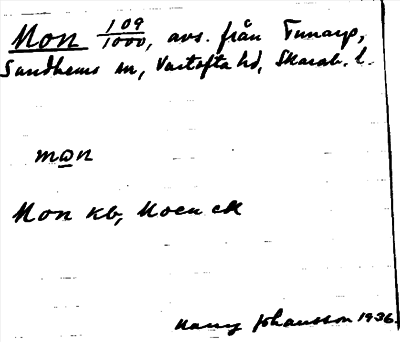 Mon 109/1000, avs. från Tunarp,
Sandhems sn, Vartofta hd, Skarab. l.
mωn
Mon kb, Moen eK
Harry Johansson 1936.